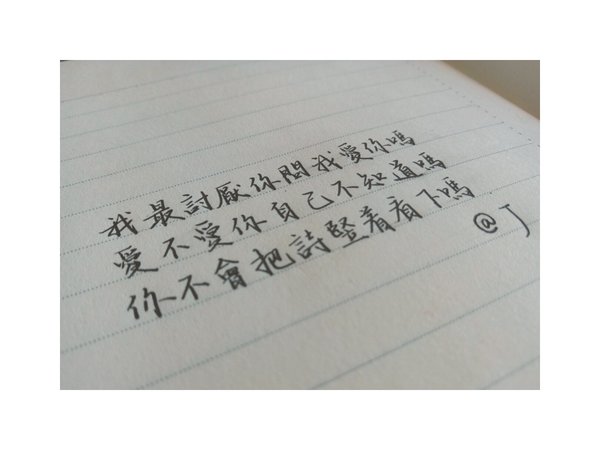 我最討厭你問我愛你嗎
愛不愛你自己不知道嗎
你不會把詩竪着看下嗎
@J